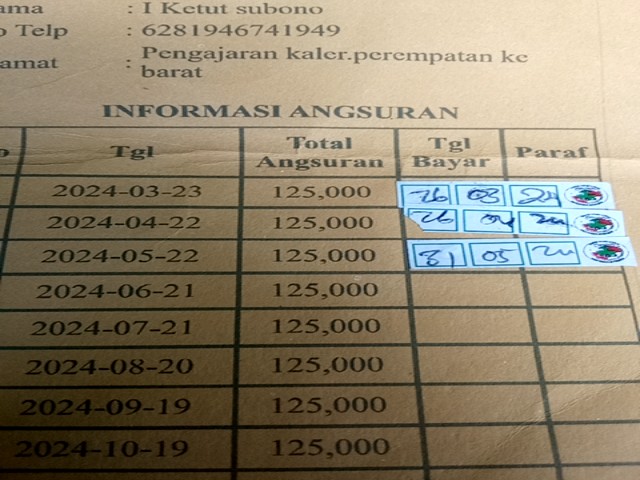 ama : I Ketut subono
o Telp : 6281946741949
amat : Pengajaran kaler.perempatan ke
barat
INFORMASI ANGSURAN
o Tgl Total Angsuran Tgl Bayar Paraf
2024-03-23 125,000 26 03 24
2024-04-22 125,000 26 04 24
2024-05-22 125,000 31 05 24
2024-06-21 125,000
2024-07-21 125,000
2024-08-20 125,000
2024-09-19 125,000
2024-10-19 125,000